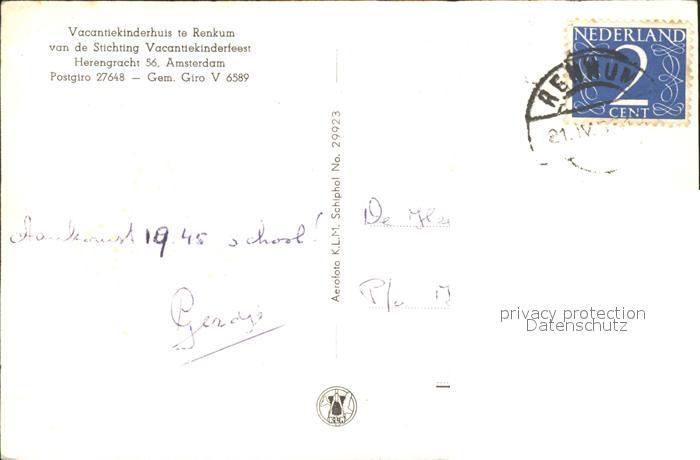 Vacantiekinderhuis te Renkum
van de Stichting Vacantiekinderfeest
Herengracht 56, Amsterdam
Postgiro 27648 — Gem. Giro V 6589
Aankomst 19 45 school!
Gerdys
Aerofoto K.L.M. Schiphol No. 29923
NEDERLAND
2
CENT
21. IV.
De
P/a
privacy protection
Datenschutz